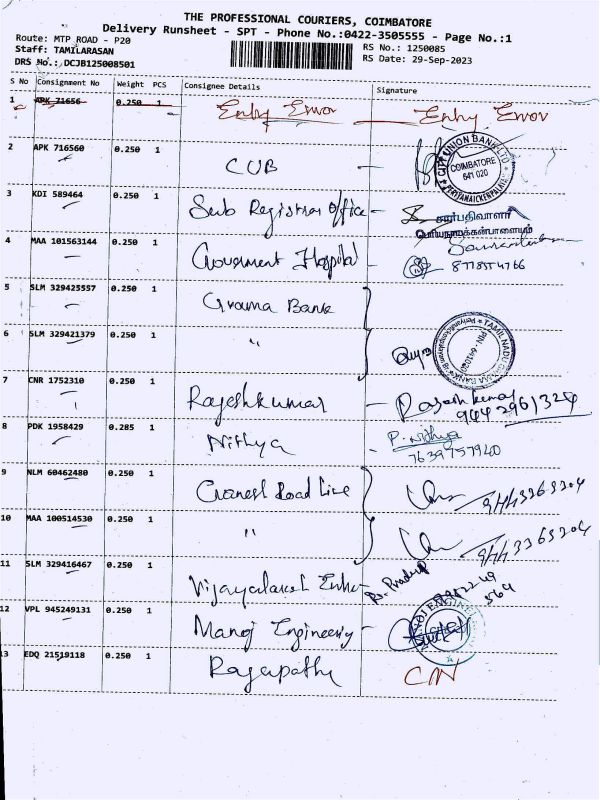 THE PROFESSIONAL COURIERS, COIMBATORE
Delivery Runsheet - SPT - Phone No.:0422-3505555 - Page No.:1
Route: MTP ROAD - P20
RS No.: 1250085
Staff: TAMILARASAN
RS Date: 29-Sep-2023
DRS No.: DCJB125008501
S No Consignment No Weight PCS Consignee Details Signature
1 APK 71656 0.250 1 Entry Error Entry Error
2 APK 716560 0.250 1 CUB -
CITY UNION BANK LTD
COIMBATORE
641 020
PERIYANAICKENPALAYAM
3 KDI 589464 0.250 1 Sub Registrar Office -
சார்பதிவாளர்
பெரியநாயக்கன்பாளையம்
4 MAA 101563144 0.250 1 Government Hospital -
5 SLM 329425557 0.250 1 Grama Bank
6 SLM 329421379 0.250 1 "
TAMIL NADU GRAMA BANK
7 CNR 1752310 0.250 1 Rajeshkumar - Rajesh kumar
9442961324
8 PDK 1958429 0.285 1 Nithya - P. Nithya
7639757920
9 NLM 60462480 0.250 1 Ganesh Road Line
10 MAA 100514530 0.250 1 "
11 SLM 329416467 0.250 1
12 VPL 945249131 0.250 1 Manoj Engineering -
13 EDQ 21519118 0.250 1 C/N